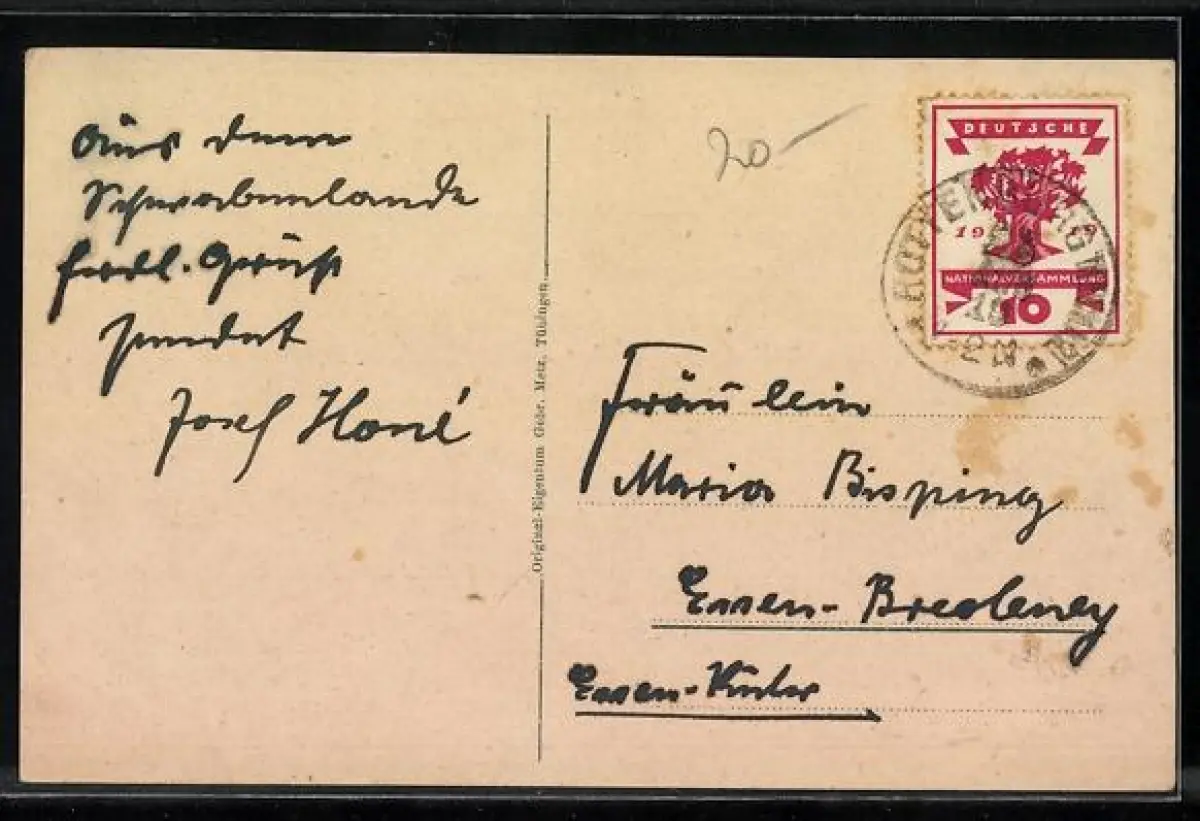 Aus dem
Schwabenlande
frdl. Grüße
sendet
Josef Honé
Original-Eigentum Gebr. Metz, Tübingen.
20-
DEUTSCHE
1919
NATIONALVERSAMMLUNG
10
Fräulein
Maria Bisping
Essen-Bredeney
Essen-Ruhr